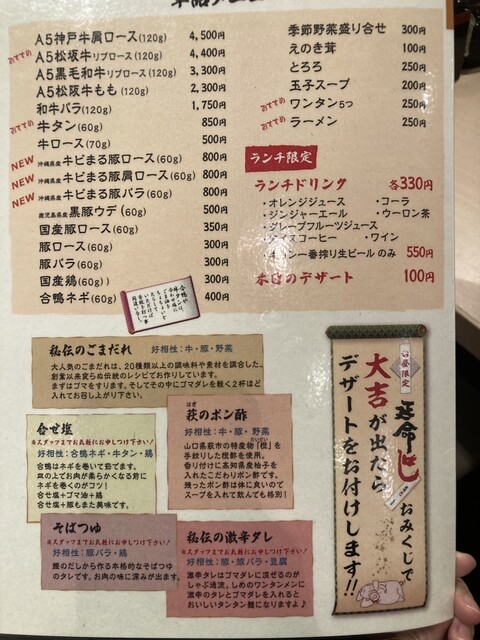 単品メニュー
A5神戸牛肩ロース(120g) 4,500円
おすすめ A5松坂牛リブロース(120g) 4,400円
A5黒毛和牛リブロース(120g) 3,300円
A5松阪牛もも(120g) 2,300円
和牛バラ(120g) 1,750円
おすすめ 牛タン(60g) 850円
牛ロース(70g) 500円
NEW 沖縄県産キビまる豚ロース(60g) 800円
NEW 沖縄県産キビまる豚肩ロース(60g) 800円
NEW 沖縄県産キビまる豚バラ(60g) 800円
鹿児島県産黒豚ウデ(60g) 500円
国産豚ロース(60g) 350円
豚ロース(60g) 300円
豚バラ(60g) 300円
国産鶏(60g)) 300円
合鴨ネギ(60g) 400円
季節野菜盛り合せ 300円
えのき茸 100円
とろろ 250円
玉子スープ 200円
おすすめ ワンタン5つ 250円
おすすめ ラーメン 250円
ランチ限定
ランチドリンク 各330円
・オレンジジュース ・コーラ
・ジンジャーエール ・ウーロン茶
・グレープフルーツジュース
アイスコーヒー ・ワイン
キリン一番搾り生ビールのみ 550円
本日のデザート 100円
秘伝のごまだれ 好相性:牛・豚・野菜
大人気のごまだれは、20種類以上の調味料や素材を調合した、
創業以来変らぬ伝統のレシピでお作りしています。
まずはゴマをすります。そしてその中にゴマダレを軽く2杯ほど
入れてお召し上がり下さい。
合せ塩
※スタッフまでお気軽にお申しつけ下さい!
好相性:合鴨ネギ・牛タン・鶏
合鴨はネギを巻いて茹でます。
皿の上でお肉が柔らかくなる前に
ネギを巻くのがコツ!
合せ塩+ゴマ油+鶏
合せ塩+豚もまた美味です。
はぎ
萩のポン酢
好相性:牛・豚・野菜
山口県萩市の特産物「橙」を
だいだい
手絞りした橙酢を使用。
香り付けに高知県産柚子を
入れたこだわりポン酢です。
残ったポン酢は体に良いので
スープを入れて飲んでも格別!
そばつゆ
※スタッフまでお気軽にお申しつけ下さい!
好相性:豚バラ・鶏
鰹のだしから作る本格的なそばつゆ
のタレです。お肉の味に深みが出ます。
秘伝の激辛タレ
※スタッフまでお気軽にお申しつけ下さい!
好相性:豚・豚バラ・豆腐
激辛タレはゴマダレに混ぜるのが
しゃぶ通流。しめのワンタンメンに
激辛のタレとゴマダレを入れると
おいしいタンタン麺になりますよ♪
お昼限定
延命しゃぶおみくじで
大吉が出たら
デザートをお付けします!!